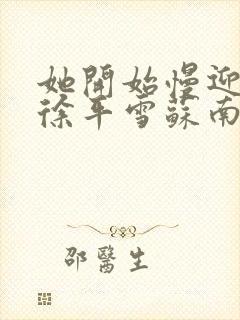 她開始慢迎
徐平雪蘇南
邵醫生